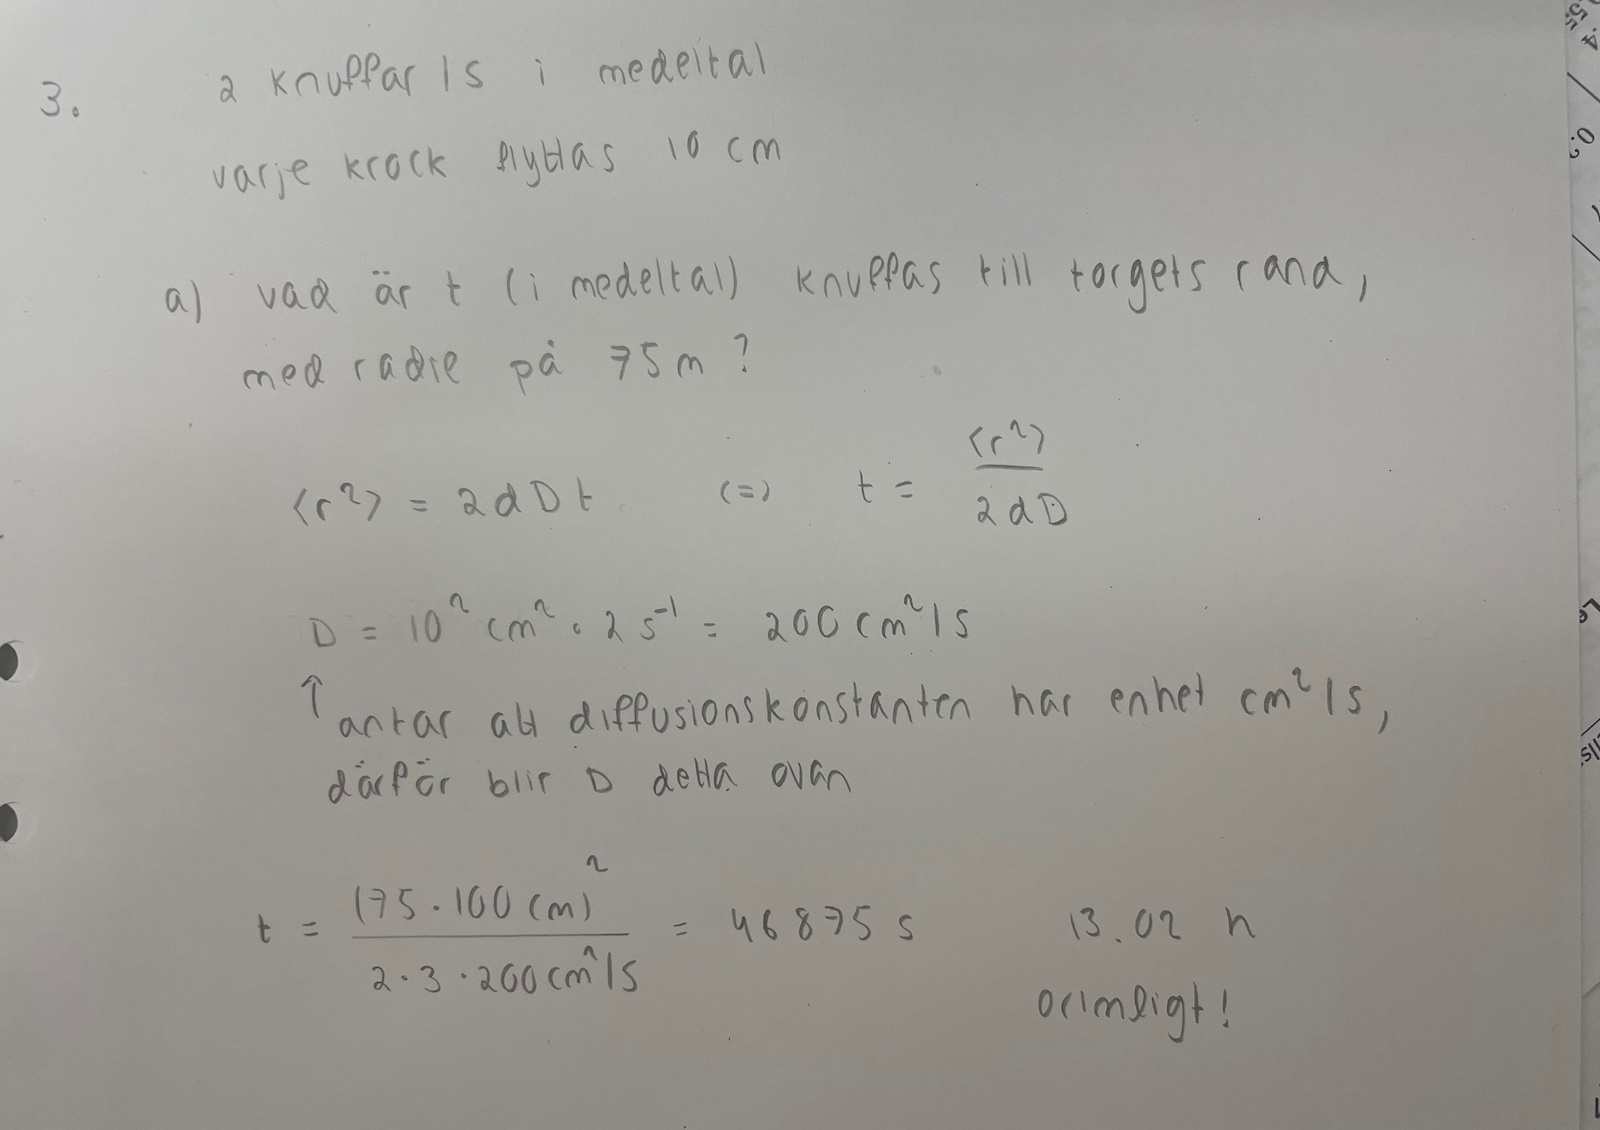 3. 2 knuffar/s i medeltal
varje krock flyttas 10 cm
a) vad är t (i medeltal) knuffas till torgets rand,
med radie på 75 m?
⟨r²⟩ = 2dDt (=) t = ⟨r²⟩ / 2dD
D = 10² cm² · 2 s⁻¹ = 200 cm²/s
↑ antar att diffusionskonstanten har enhet cm²/s,
därför blir D detta ovan
t = (75 · 100 cm)² / 2 · 3 · 200 cm²/s = 46875 s 13.02 h
orimligt!